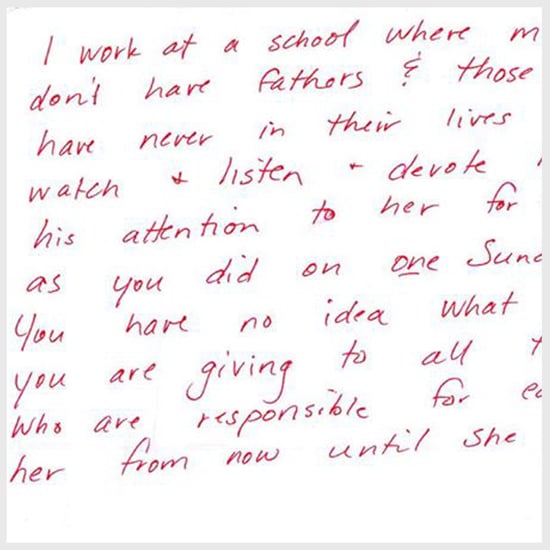 I work at a school where m
don't have fathers & those
have never in their lives
watch + listen + devote
his attention to her for
as you did on one Sund
You have no idea what
you are giving to all t
who are responsible for ea
her from now until she